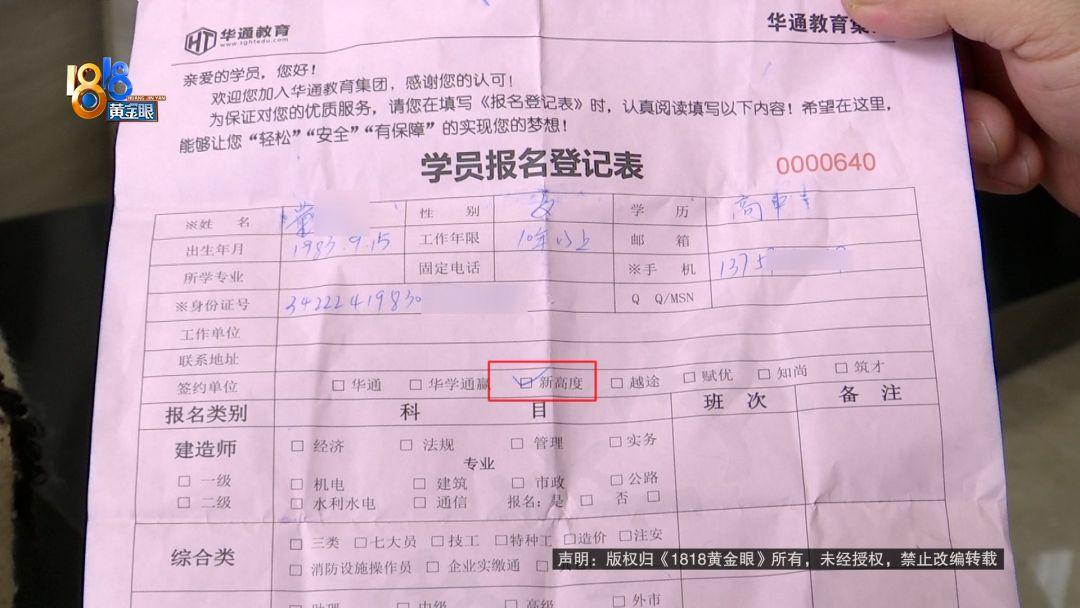 华通教育
www.zghtedu.com
华通教育集
1818
黄金眼
亲爱的学员，您好！
欢迎您加入华通教育集团，感谢您的认可！
为保证对您的优质服务，请您在填写《报名登记表》时，认真阅读填写以下内容！希望在这里，
能够让您“轻松”“安全”“有保障”的实现您的梦想！
学员报名登记表
0000640
※姓 名 董 性 别 女 学 历 高中
出生年月 1983.9.15 工作年限 10年以上 邮 箱
所学专业 固定电话 ※手 机 1375
※身份证号 34222419830 Q Q/MSN
工作单位
联系地址
签约单位 □ 华通 □ 华学通赢 □ 新高度 □ 越途 □ 赋优 □ 知尚 □ 筑才
报名类别 科 目 班 次 备 注
建造师 □ 经济 □ 法规 □ 管理 □ 实务
专业
□ 一级 □ 机电 □ 建筑 □ 市政 □ 公路
□ 二级 □ 水利水电 □ 通信 报名：是 □ 否 □
综合类 □ 三类 □ 七大员 □ 技工 □ 特种工 □ 造价 □ 注安
□ 消防设施操作员 □ 企业实缴通 □
声明：版权归《1818黄金眼》所有，未经授权，禁止改编转载
□ 助理 □ 中级 □ 高级 □ 外市